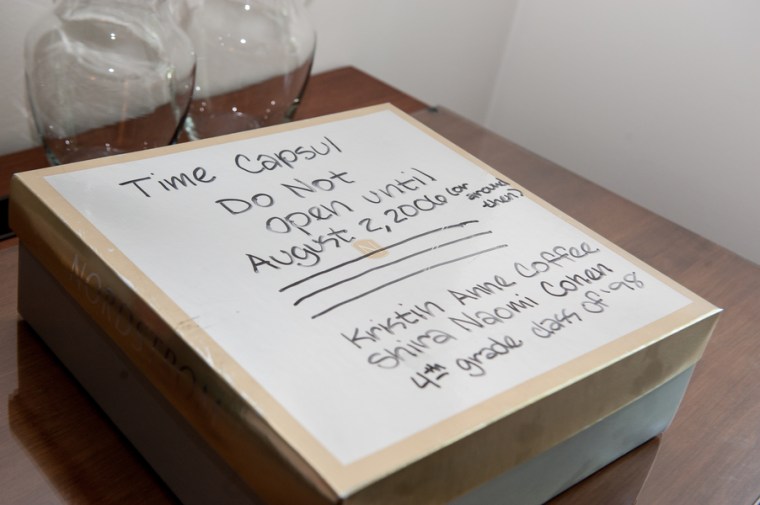 Time Capsul
Do Not
open until
August 2, 2006 (or around then)
N
Kristin Anne Coffee
Shira Naomi Cohen
4th grade class of 98
NORDSTROM